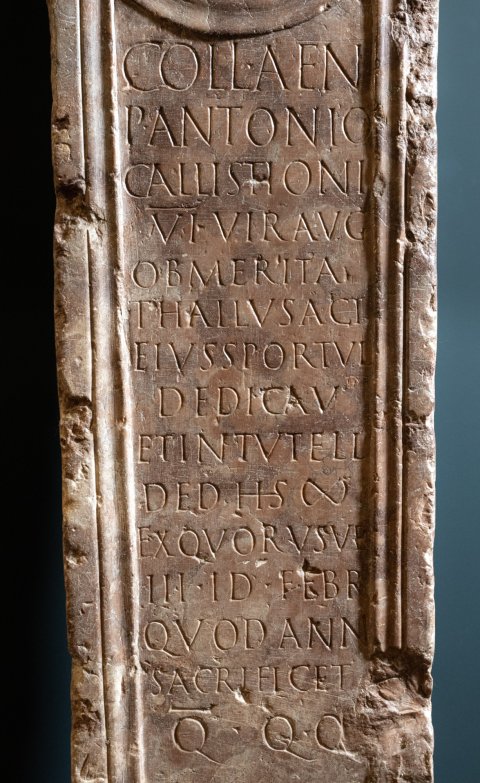 COLL·AEN
P·ANTONIO
CALLISTIONI
VI·VIR·AVG
OB MERITA
THALLVS ACT
EIVS SPORTVL
DEDICAV
ET IN TVTELL
DED·HS ∞ N
EX QVOR VSVR
III·ID·FEBR
QVOD ANN
SACRIFICET
Q·Q·Q